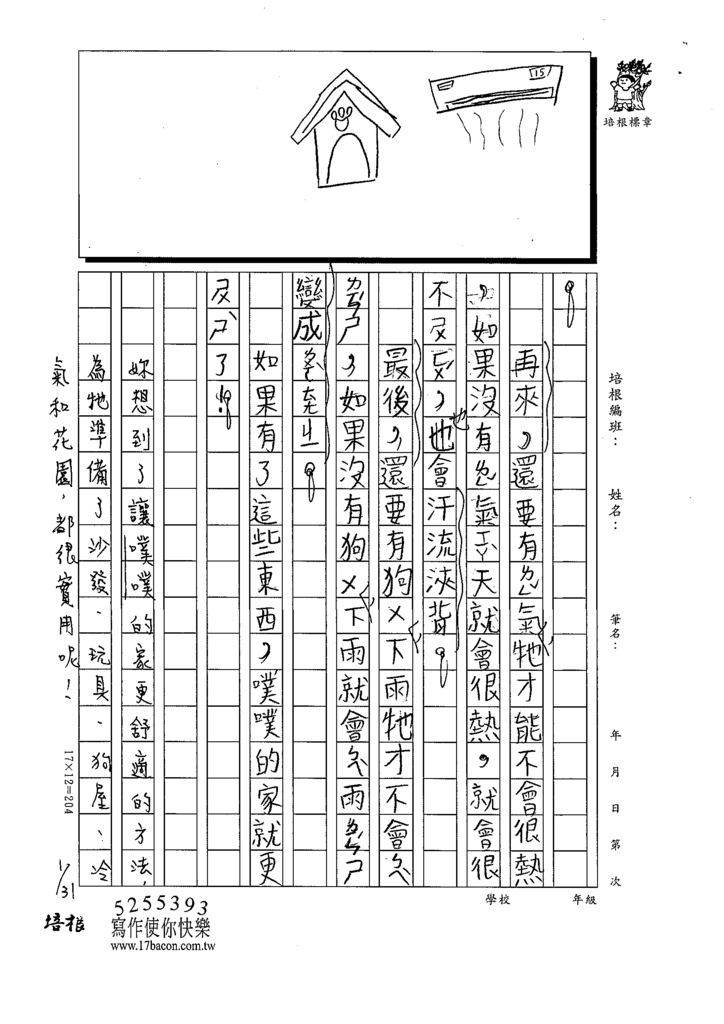 15
培根標章
培根編班：
姓名：
筆名：
年 月 日 第 次
學校 年級
。
再來，還要有ㄌㄥˇ氣，牠才能不會很熱
，如果沒有ㄌㄥˇ氣ㄒㄧㄚˋ天就會很熱，就會很
不ㄕㄨ，也會汗流浹背。
也
最後，還要有狗ㄨ，下雨牠才不會ㄌㄧㄣˊ
ㄕ，如果沒有狗ㄨ，下雨就會ㄌㄧㄣˊ雨
變成
如果有了這些東西，噗噗的家就更
了！。
妳想到了讓噗噗的家更舒適的方法，
為牠準備了沙發、玩具、狗屋、冷
氣和花園，都很實用呢！
17×12=204
1/31
培根
5255393
寫作使你快樂
www.17bacon.com.tw